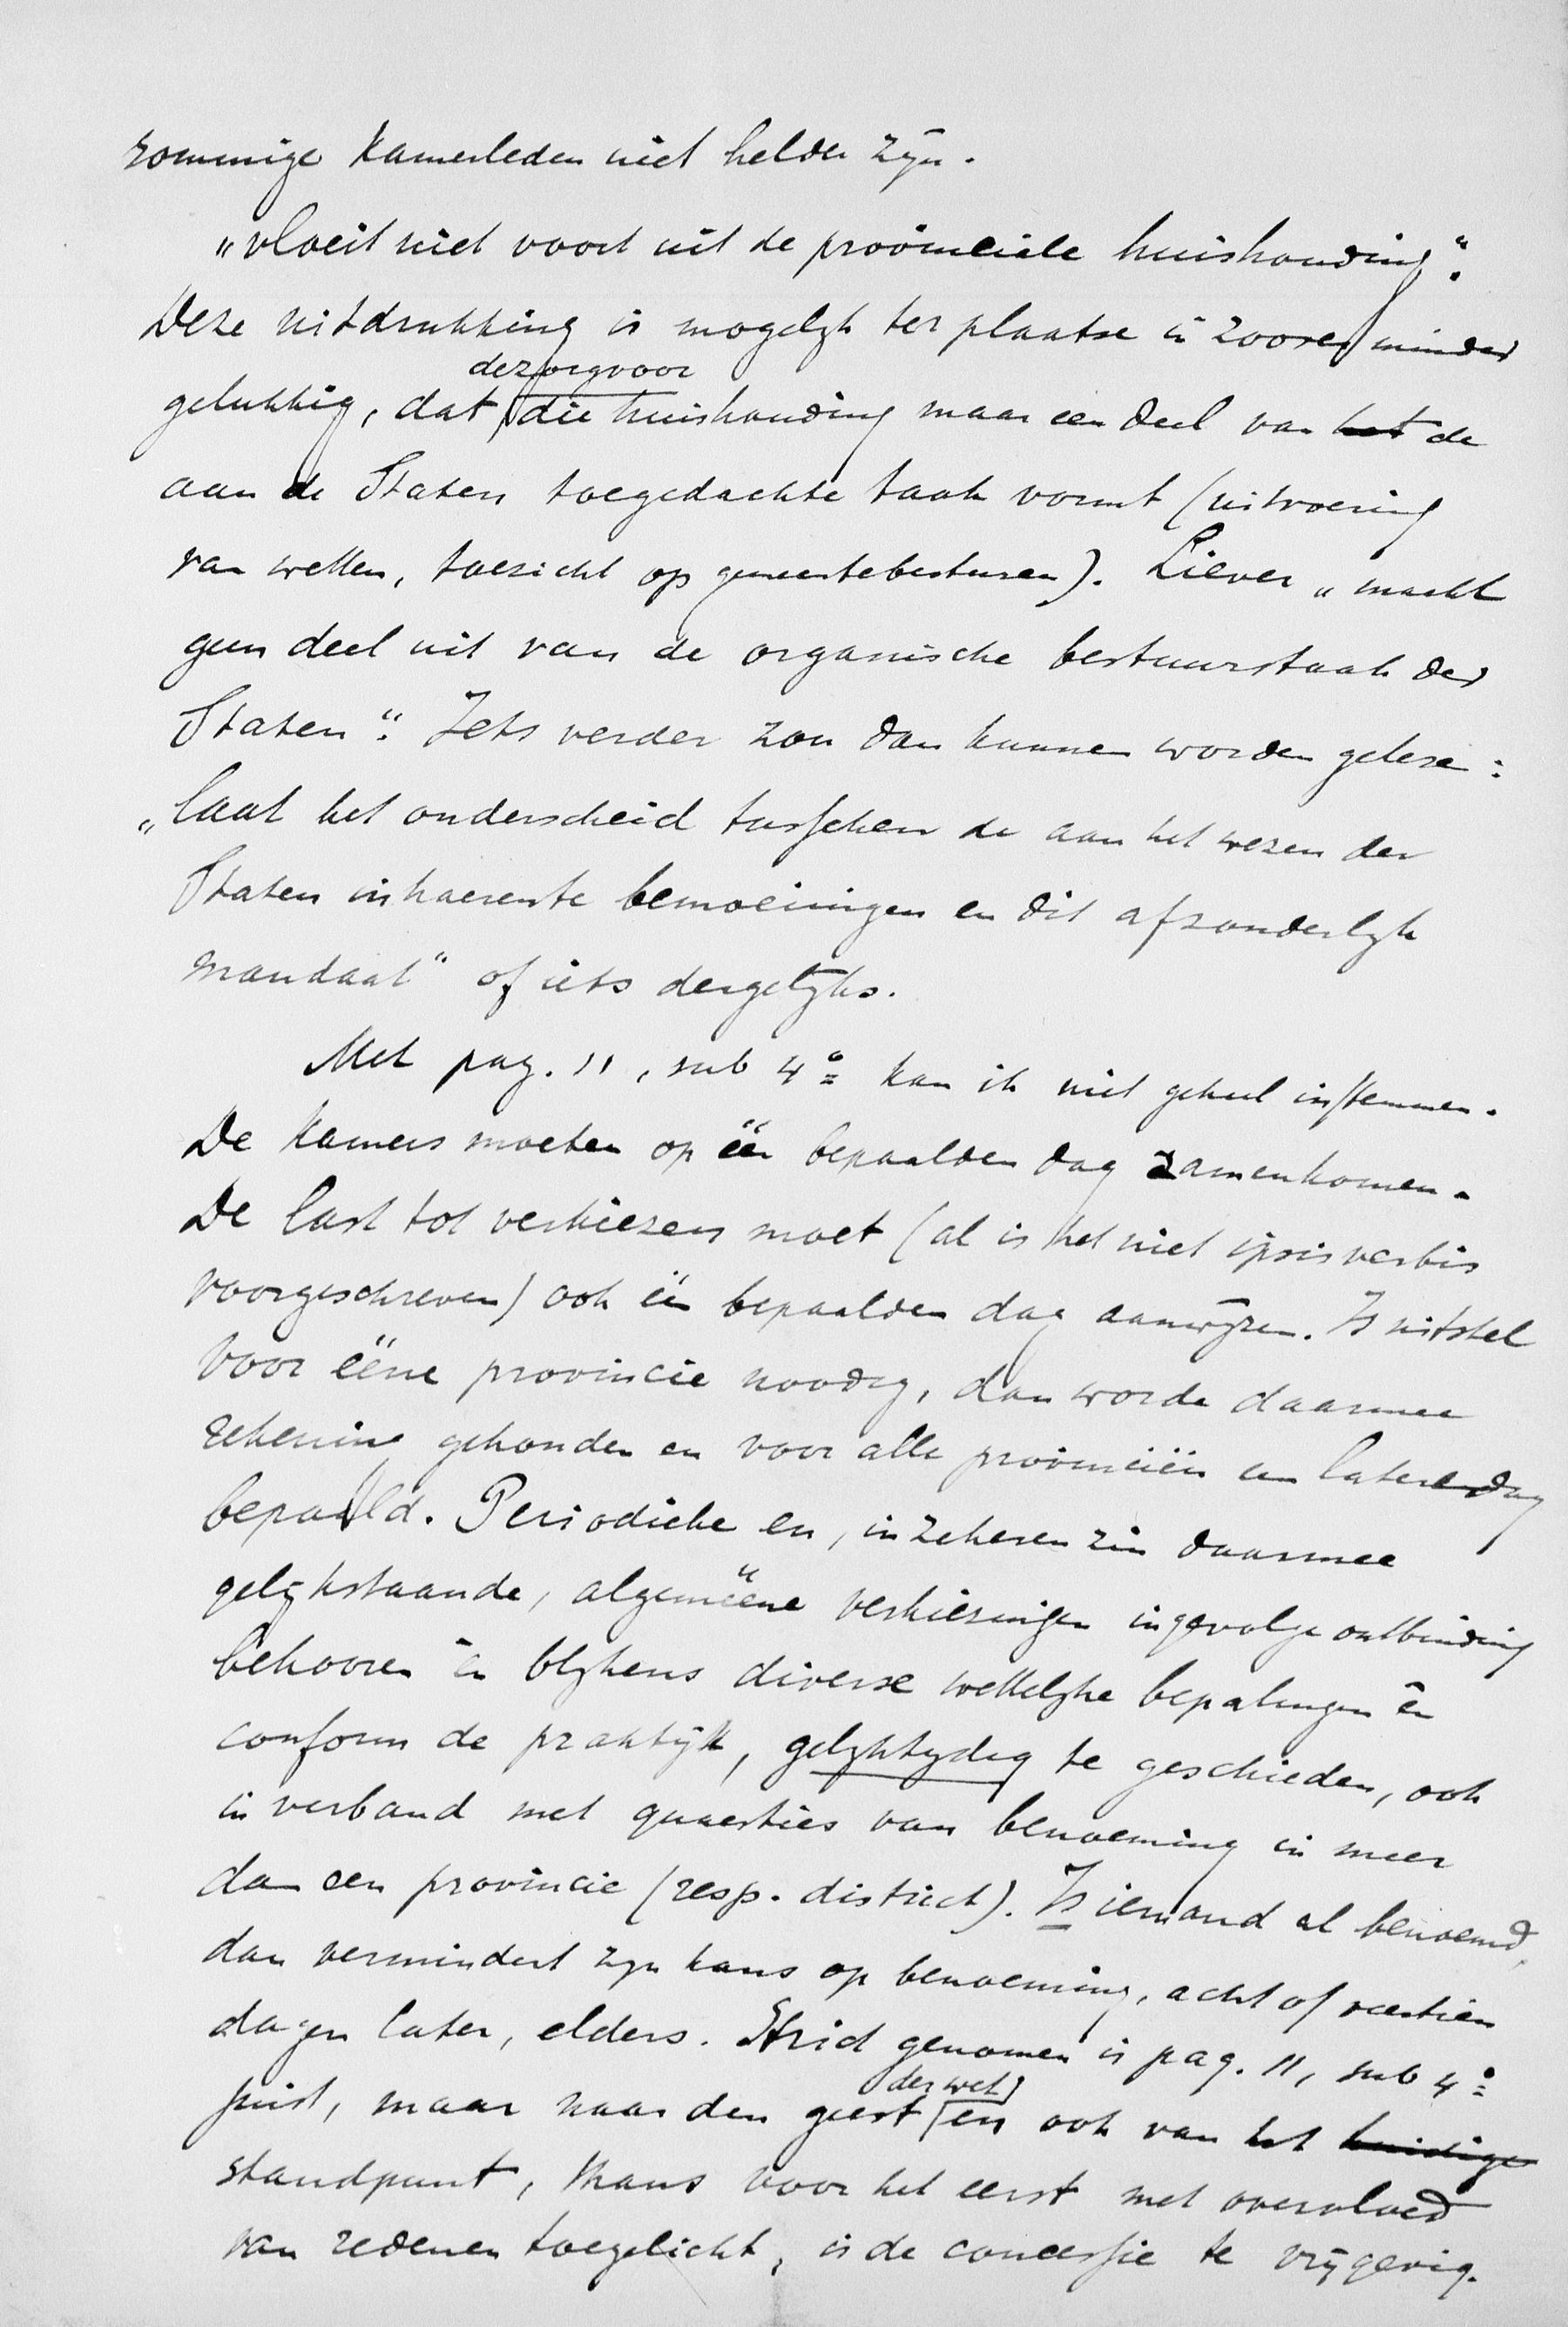 sommige Kamerleden niet helder zijn.
„vloeit niet voort uit de provinciale huishouding“.
Deze uitdrukking is mogelijk ter plaatse in zoover minder
de zorg voor
gelukkig, dat die huishouding maar een deel van het de
aan de Staten toegedachte taak vormt (uitvoering
van wetten, toezicht op gemeentebesturen). Liever „maakt
geen deel uit van de organische bestuurstaak der
Staten“. Iets verder zou dan kunnen worden gelezen:
„laat het onderscheid tusschen de aan het wezen der
Staten inhaerente bemoeiingen en dit afzonderlijk
mandaat“ of iets dergelijks.
Met pag. 11, sub 4° kan ik niet geheel instemmen.
De Kamers moeten op één bepaalden dag zamenkomen.
De last tot verkiezen moet (al is het niet ipsis verbis
voorgeschreven) ook één bepaalden dag aanwijzen. Is uitstel
voor ééne provincie noodig, dan worde daarmee
rekening gehouden en voor alle provinciën een latere dag
bepaald. Periodieke en, in zekeren zin daarmee
gelijkstaande, algemeene verkiezingen ingevolge ontbinding
behooren èn blijkens diverse wettelijke bepalingen èn
conform de praktijk, gelijktijdig te geschieden, ook
in verband met quaesties van benoeming in meer
dan een provincie (resp. district). Is iemand al benoemd,
dan vermindert zijn kans op benoeming, acht of veertien
dagen later, elders. Strict genomen is pag. 11, sub 4°
der wet
juist, maar naar den geest en ook van het huidige
standpunt, thans voor het eerst met overvloed
van redenen toegelicht, is de concessie te vrijgevig.